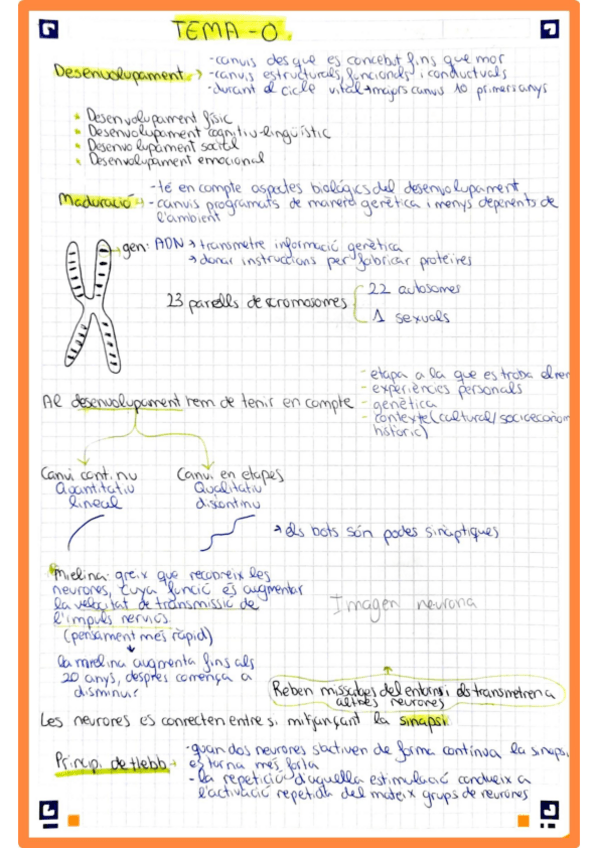 TEMA - 0.
Desenvolupament → -canvis des que es concebut fins que mor
-canvis estructurals, funcionals i conductuals
-durant el cicle vital → majors canvis 10 primers anys
• Desenvolupament físic
• Desenvolupament cognitiu-lingüístic
• Desenvolupament social
• Desenvolupament emocional
Maduració → -té en compte aspectes biològics del desenvolupament
-canvis programats de manera genètica i menys depenents de
l'ambient
gen: ADN → transmetre informació genètica
→ donar instruccions per fabricar proteïnes
23 parells de cromosomes
22 autosomes
1 sexuals
Al desenvolupament hem de tenir en compte
- etapa a la que es troba el nen
- experiències personals
- genètica
- contexte (cultural/socioeconòm
històric)
Canvi continu
Quantitatiu
lineal
Canvi en etapes
Qualitatiu
discontinu
→ els bots són podes sinàptiques
Mielina: greix que recobreix les
neurones, cuya funció és augmentar
la velocitat de transmissió de
l'impuls nerviós.
(pensament més ràpid)
la mielina augmenta fins als
20 anys, després comença a
disminuir
Imagen neurona
Reben missatges del entorn i els transmeten a
altres neurones
Les neurones es connecten entre si mitjançant la sinapsi
Principi de Hebb → -quan dos neurones s'activen de forma contínua la sinaps
es torna més forta
-la repetició d'aquella estimulació condueix a
l'activació repetida del mateix grups de neurones